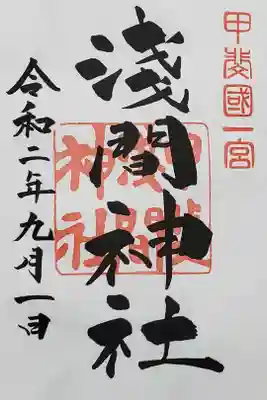 甲斐國一宮
淺間神社
令和二年九月一日